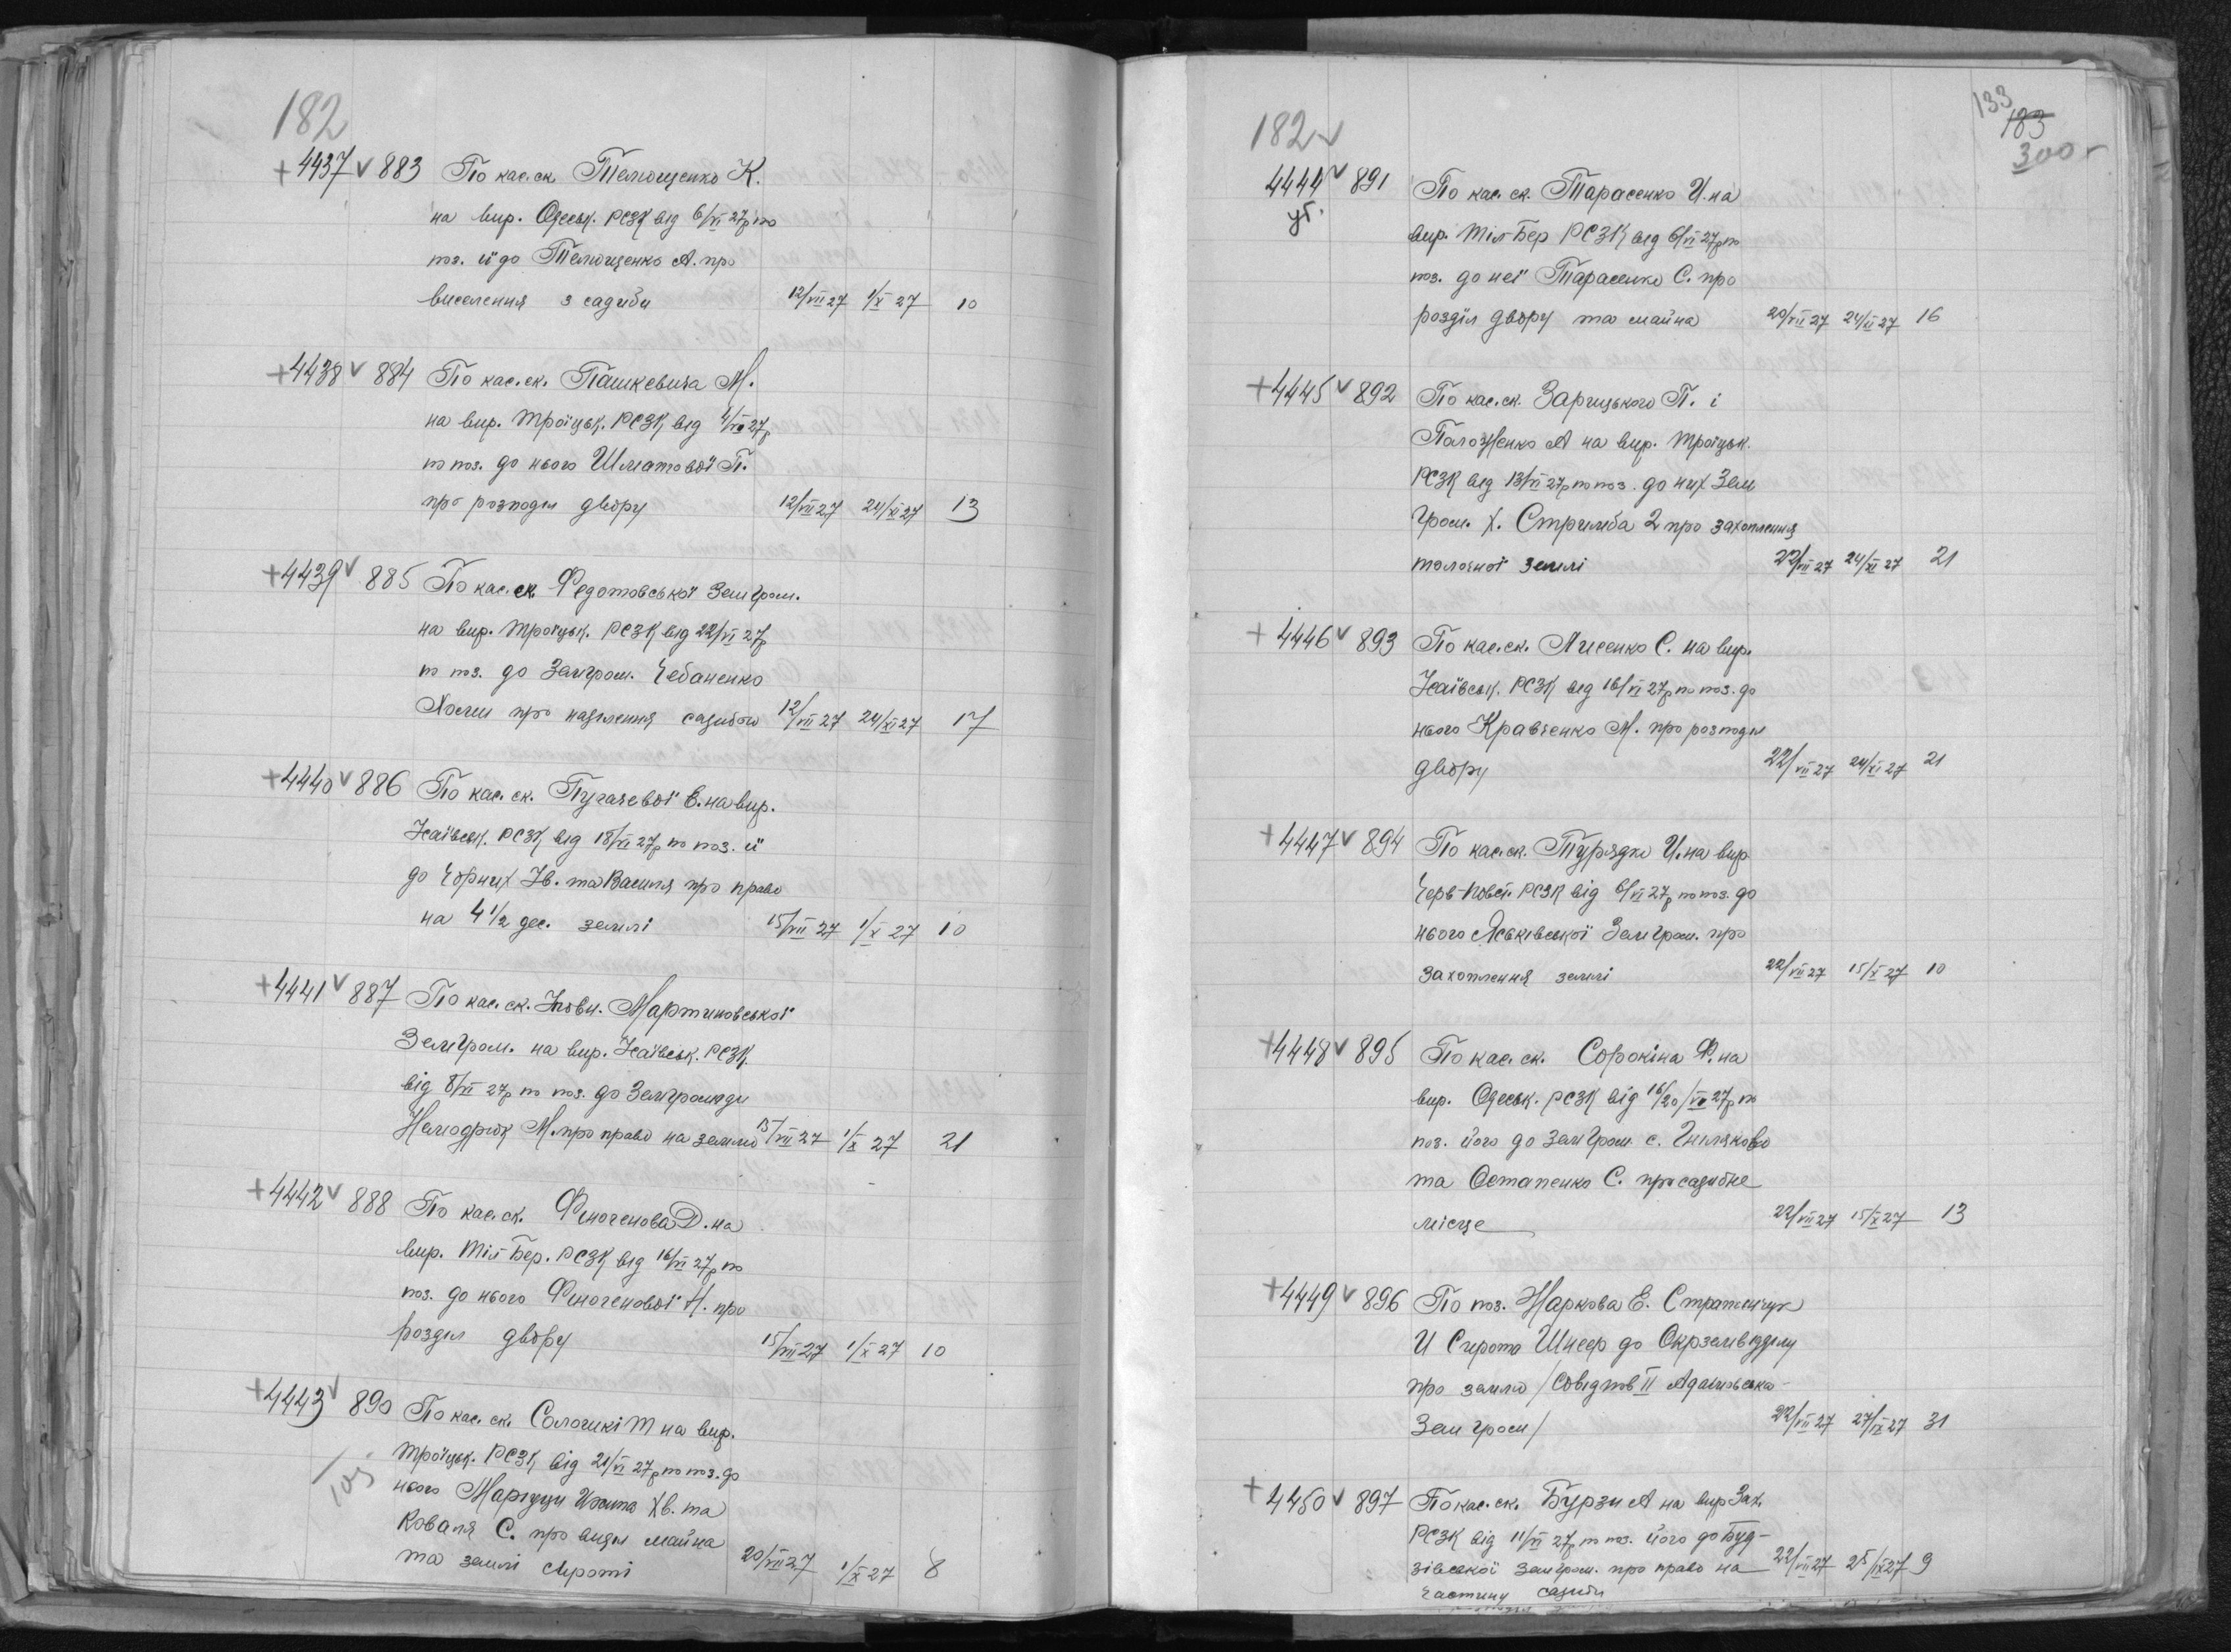 182
+4437 v 883 По кас. ск. Телющенко К.
на вир. Одеськ. РСЗК від 6/VI 27р по
поз. її до Телющенко А. про
виселення з садиби 12/VII 27 1/X 27 10
+4438 v 884 По кас. ск. Пашкевича М.
на вир. Троїцьк. РСЗК від 4/VI 27р
по поз. до нього Шматової П.
про розподіл двору 12/VII 27 24/XI 27 13
+4439 v 885 По кас. ск. Федотовської Земгром.
на вир. Троїцьк. РСЗК від 22/VI 27р
по поз. до Земгром. Чебаненко
Хоми про наділення садибою 12/VII 27 24/XI 27 17
+4440 v 886 По кас. ск. Пугачевої Е. на вир.
Жаївськ. РСЗК від 18/VI 27р по поз. її
до Чорних Ів. та Василя про право
на 4 1/2 дес. землі 15/VII 27 1/X 27 10
+4441 v 887 По кас. ск. Мартиновської
Земгром. на вир. Жаївськ. РСЗК
від 8/VI 27р по поз. до Земгромади
М. про право на землю 15/VII 27 1/X 27 21
+4442 v 888 По кас. ск. Финогенова Д. на
вир. Тіл-Бер. РСЗК від 16/VI 27р по
поз. до нього Финогенової Н. про
розділ двору 15/VII 27 1/X 27 10
+4443 v 890 По кас. ск. Сологикі Т на вир.
Троїцьк. РСЗК від 21/VI 27р по поз. до
нього Маргуци Ів. та
105
Коваля С. про виділ майна
та землі сироті 20/VII 27 1/X 27 8
133
183
300
182 v
4444 v 891 По кас. ск. Тарасенко И. на
уг.
вир. Тіл-Бер РСЗК від 6/VI 27р по
поз. до неї Тарасенко С. про
розділ двору та майна 20/VII 27 24/XI 27 16
+4445 v 892 По кас. ск. Зарицького П. і
Паложенко А на вир. Троїцьк.
РСЗК від 13/VI 27р по поз. до них Зем
гром. х. Стримба 2 про захоплення
толочної землі 22/VII 27 24/XI 27 21
+4446 v 893 По кас. ск. Лисенко С. на вир.
Жаївськ. РСЗК від 16/VI 27р по поз. до
нього Кравченко М. про розподіл
двору 22/VII 27 24/XI 27 21
+4447 v 894 По кас. ск. Турядко И. на вир
Черв-Повст. РСЗК від 6/VI 27р по поз. до
нього Яськівської Земгром. про
захоплення землі 22/VII 27 15/X 27 10
+4448 v 895 По кас. ск. Сорокіна Ф. на
вир. Одеськ. РСЗК від 16/20/VI 27р по
поз. його до Земгром. с. Гнилякова
та Остапенко С. про садибне
місце 22/VII 27 15/X 27 13
+4449 v 896 По поз. Жаркова Е. Стратенчук
И Сирота Шнеер до Окрземвідділу
про землю /Совідпов II Адамовська
Земгром/ 22/VII 27 27/IX 27 31
+4450 v 897 По кас. ск. Бурзи А на вир Зах.
РСЗК від 11/VI 27р по поз. його до Буд-
зівської земгром. про право на 22/VII 27 25/IX 27 9
частину садиби